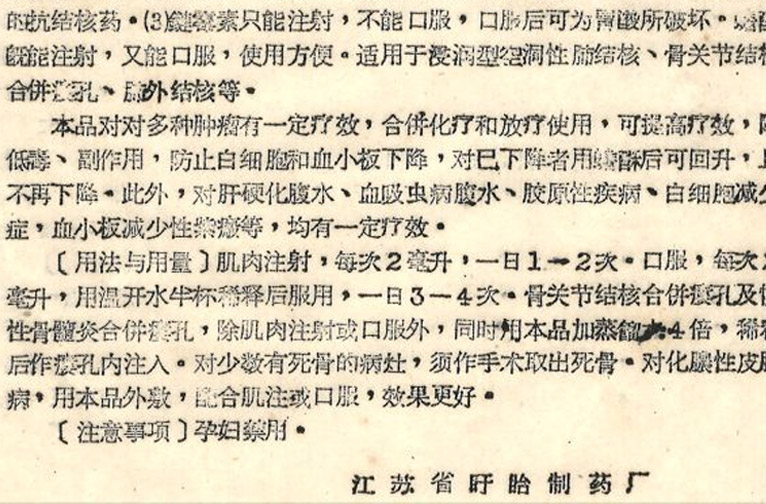 的抗结核药。(3)链霉素只能注射，不能口服，口服后可为胃酸所破坏。
既能注射，又能口服，使用方便。适用于浸润型空洞性肺结核、骨关节结核
合併瘘孔、肺外结核等。
本品对对多种肿瘤有一定疗效，合併化疗和放疗使用，可提高疗效，降
低毒、副作用，防止白细胞和血小板下降，对已下降者用蟾酥后可回升，
不再下降。此外，对肝硬化腹水、血吸虫病腹水、胶原性疾病、白细胞减少
症，血小板减少性紫癜等，均有一定疗效。
〔用法与用量〕肌肉注射，每次2毫升，一日1—2次。口服，每次
毫升，用温开水半杯稀释后服用，一日3—4次。骨关节结核合併瘘孔及
性骨髓炎合併瘘孔，除肌肉注射或口服外，同时用本品加蒸馏水4倍，稀释
后作瘘孔内注入。对少数有死骨的病灶，须作手术取出死骨。对化脓性皮肤
病，用本品外敷，配合肌注或口服，效果更好。
〔注意事项〕孕妇禁用。
江苏省盱眙制药厂